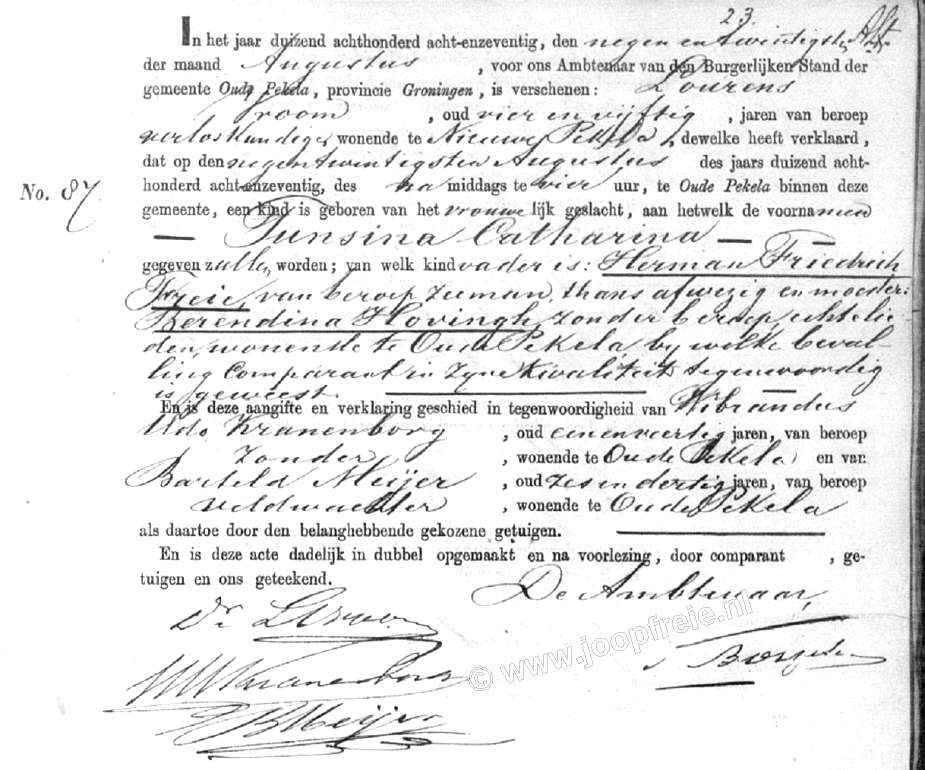 23.
In het jaar duizend achthonderd acht-enzeventig, den negen en twintigste
der maand Augustus , voor ons Ambtenaar van den Burgerlijken Stand der
gemeente Oude Pekela, provincie Groningen, is verschenen: Lourens
Sroom , oud vier en vijftig , jaren van beroep
verloskundige, wonende te Nieuwe Pekela, dewelke heeft verklaard,
dat op den negenentwintigsten Augustus des jaars duizend acht-
No. 87. honderd acht-enzeventig, des na middags te vier uur, te Oude Pekela binnen deze
gemeente, een kind is geboren van het vrouwelijk geslacht, aan hetwelk de voornamen
— Tunsina Catharina — —
gegeven zullen worden; van welk kind vader is: Herman Friedrich
Freie, van beroep zeeman, thans afwezig en moeder:
Berendina Hovingh, zonder beroep, echtelie
den, wonende te Oude Pekela by welke beval-
ling Comparant in zyne kwaliteit tegenwoordig
is geweest.
En is deze aangifte en verklaring geschied in tegenwoordigheid van Wibrandus
Udo Kranenborg , oud eenenveertig jaren, van beroep
zonder , wonende te Oude Pekela en van
Barteld Meijer , oud zesendertig jaren, van beroep
veldwachter , wonende te Oude Pekela
als daartoe door den belanghebbende gekozene getuigen.
En is deze acte dadelijk in dubbel opgemaakt en na voorlezing, door comparant , ge-
tuigen en ons geteekend.
De Ambtenaar,
WU Kranenborg
B Meijer
© www.joopfreie.nl